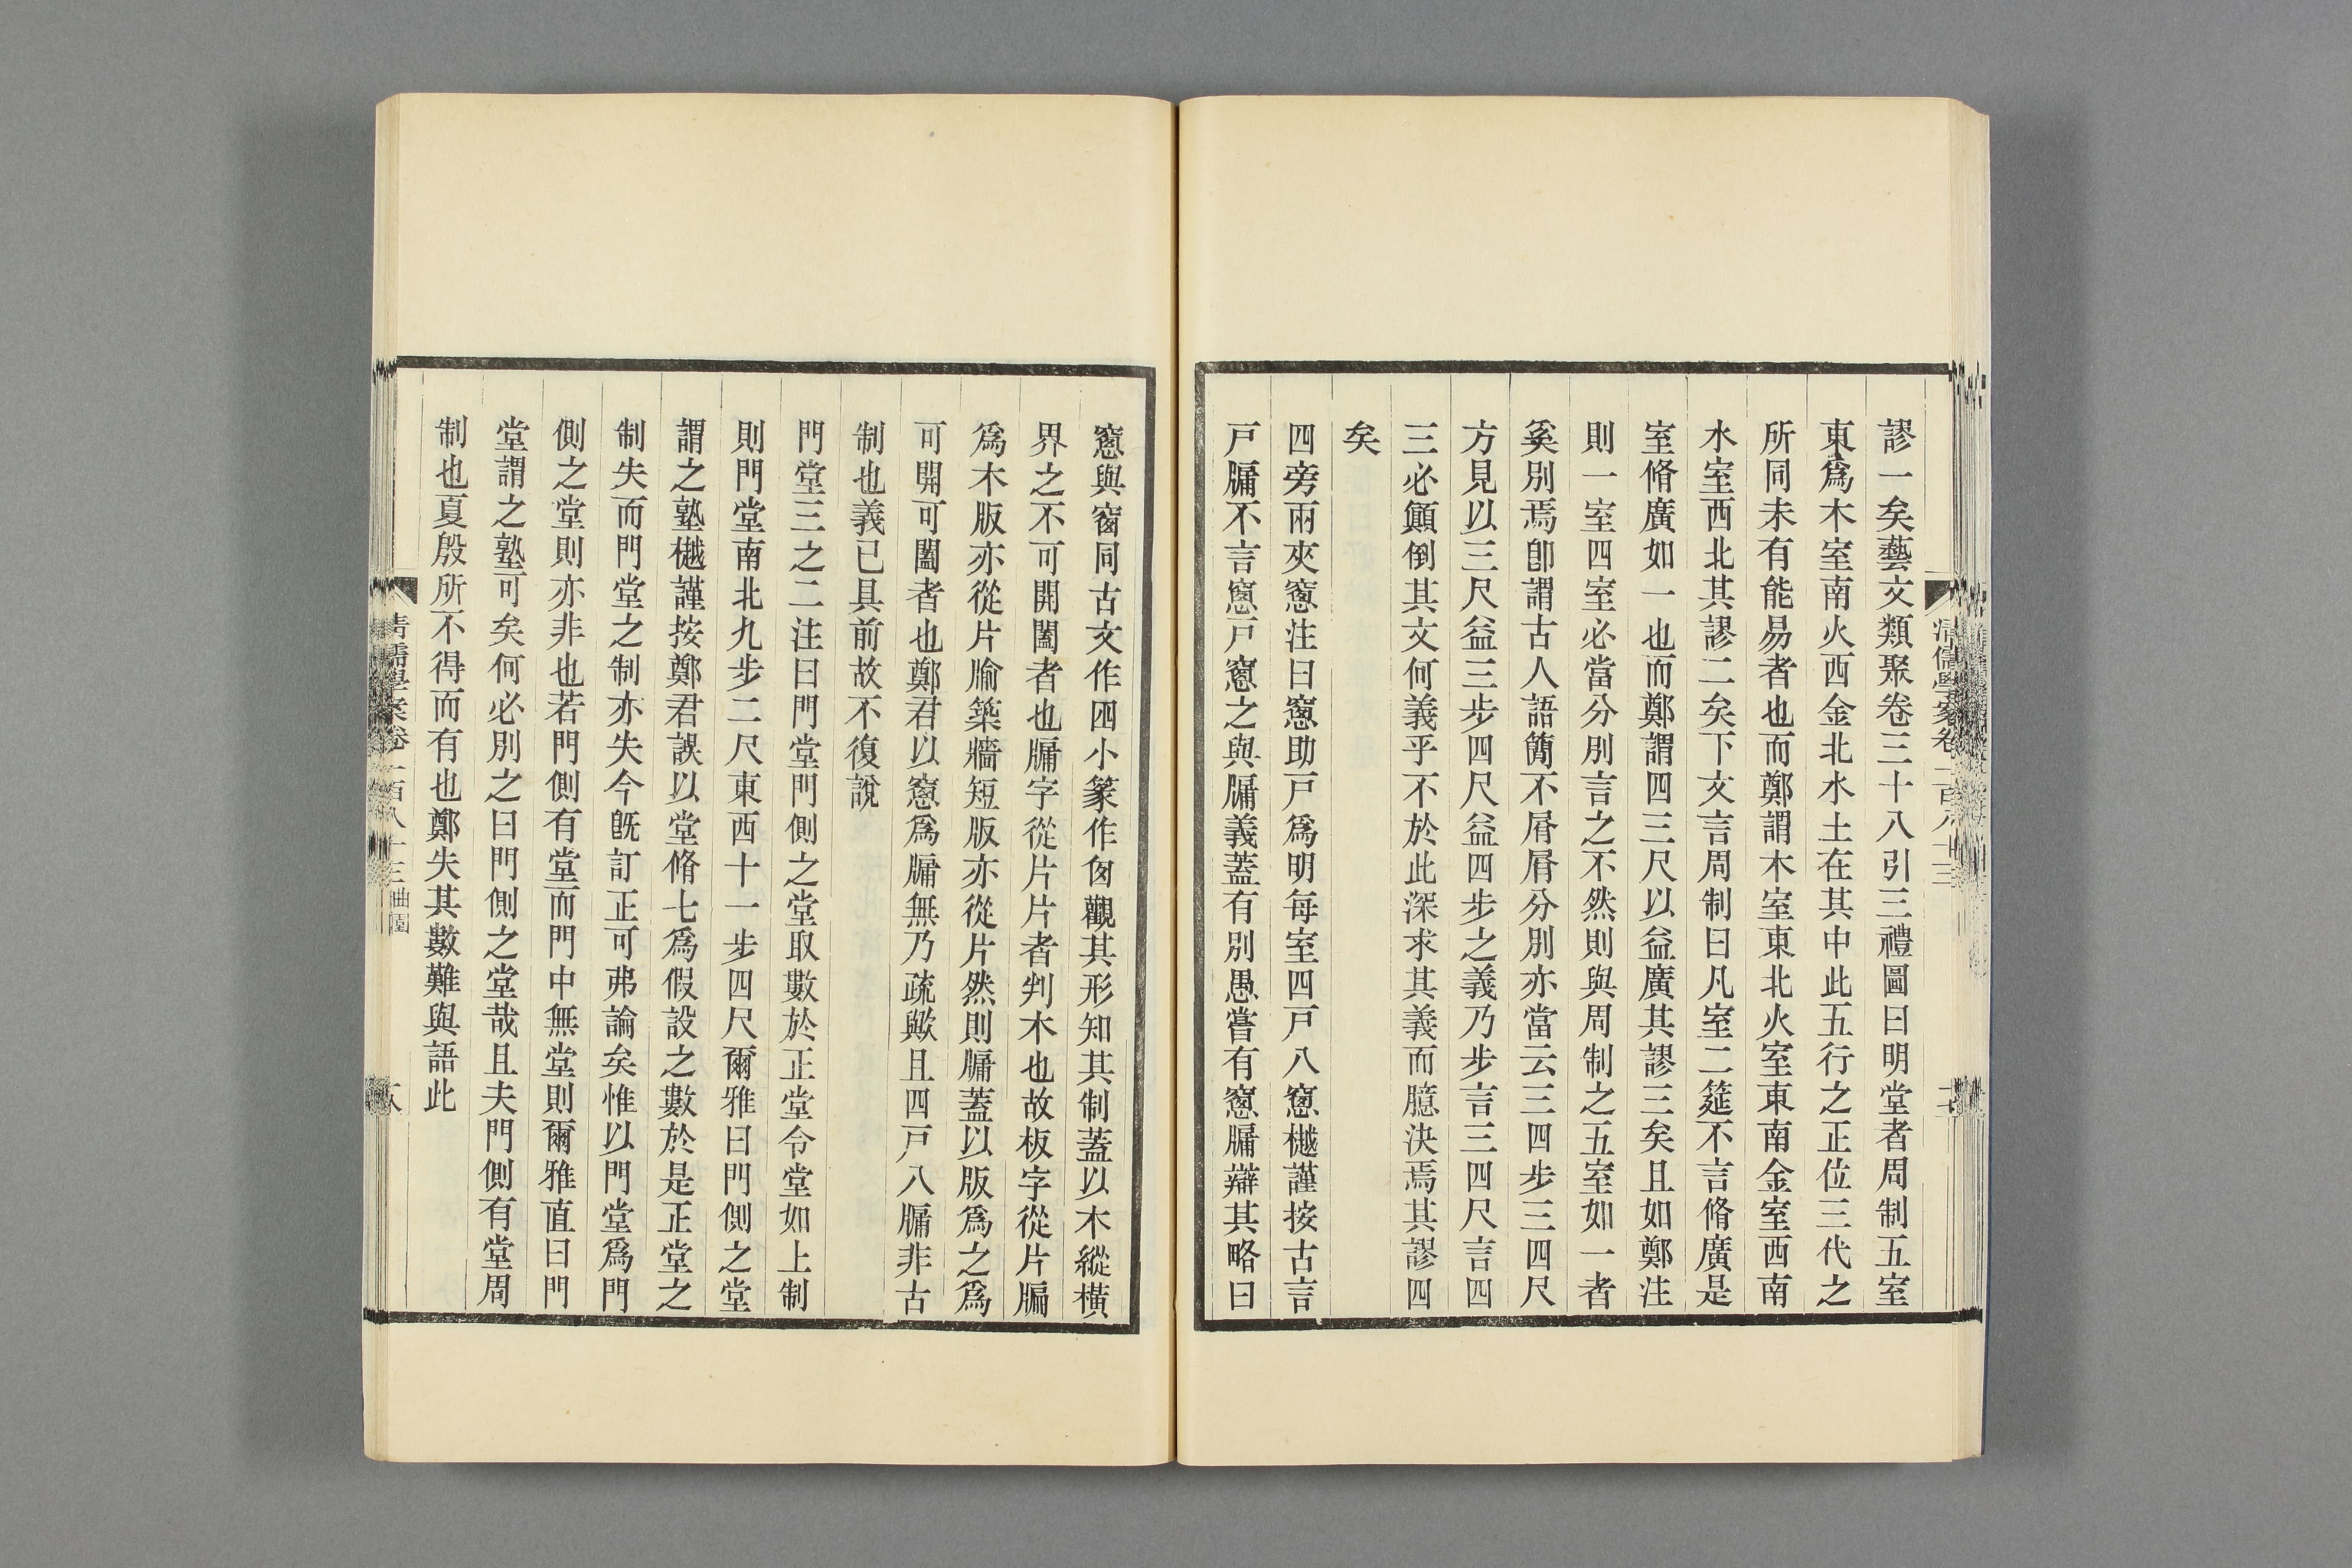 謬一矣藝文類聚卷三十八引三禮圖曰明堂者周制五室
東爲木室南火西金北水土在其中此五行之正位三代之
所同未有能易者也而鄭謂木室東北火室東南金室西南
水室西北其謬二矣下文言周制曰凡室二筵不言脩廣是
室脩廣如一也而鄭謂四三尺以益廣其謬三矣且如鄭注
則一室四室必當分別言之不然則與周制之五室如一者
奚別焉卽謂古人語簡不屑屑分別亦當云三四步三四尺
方見以三尺益三步四尺益四步之義乃步言三四尺言四
三必顚倒其文何義乎不於此深求其義而臆決焉其謬四
矣
四旁兩夾窻注曰窻助戸爲明每室四戸八窻樾謹按古言
戸牖不言窻戸窻之與牖義蓋有別愚嘗有窻牖辯其略曰
窻與窗同古文作囧小篆作囪觀其形知其制蓋以木縱橫
界之不可開闔者也牖字從片片者判木也故板字從片牑
爲木版亦從片牏築牆短版亦從片然則牖蓋以版爲之爲
可開可闔者也鄭君以窻爲牖無乃疏歟且四戸八牖非古
制也義已具前故不復說
門堂三之二注曰門堂門側之堂取數於正堂令堂如上制
則門堂南北九步二尺東西十一步四尺爾雅曰門側之堂
謂之塾樾謹按鄭君誤以堂脩七爲假設之數於是正堂之
制失而門堂之制亦失今旣訂正可弗論矣惟以門堂爲門
側之堂則亦非也若門側有堂而門中無堂則爾雅直曰門
堂謂之塾可矣何必別之曰門側之堂哉且夫門側有堂周
制也夏殷所不得而有也鄭失其數難與語此